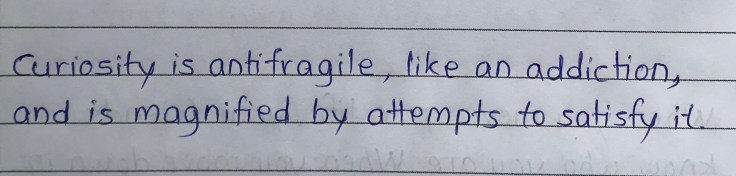 Curiosity is antifragile, like an addiction,
and is magnified by attempts to satisfy it.